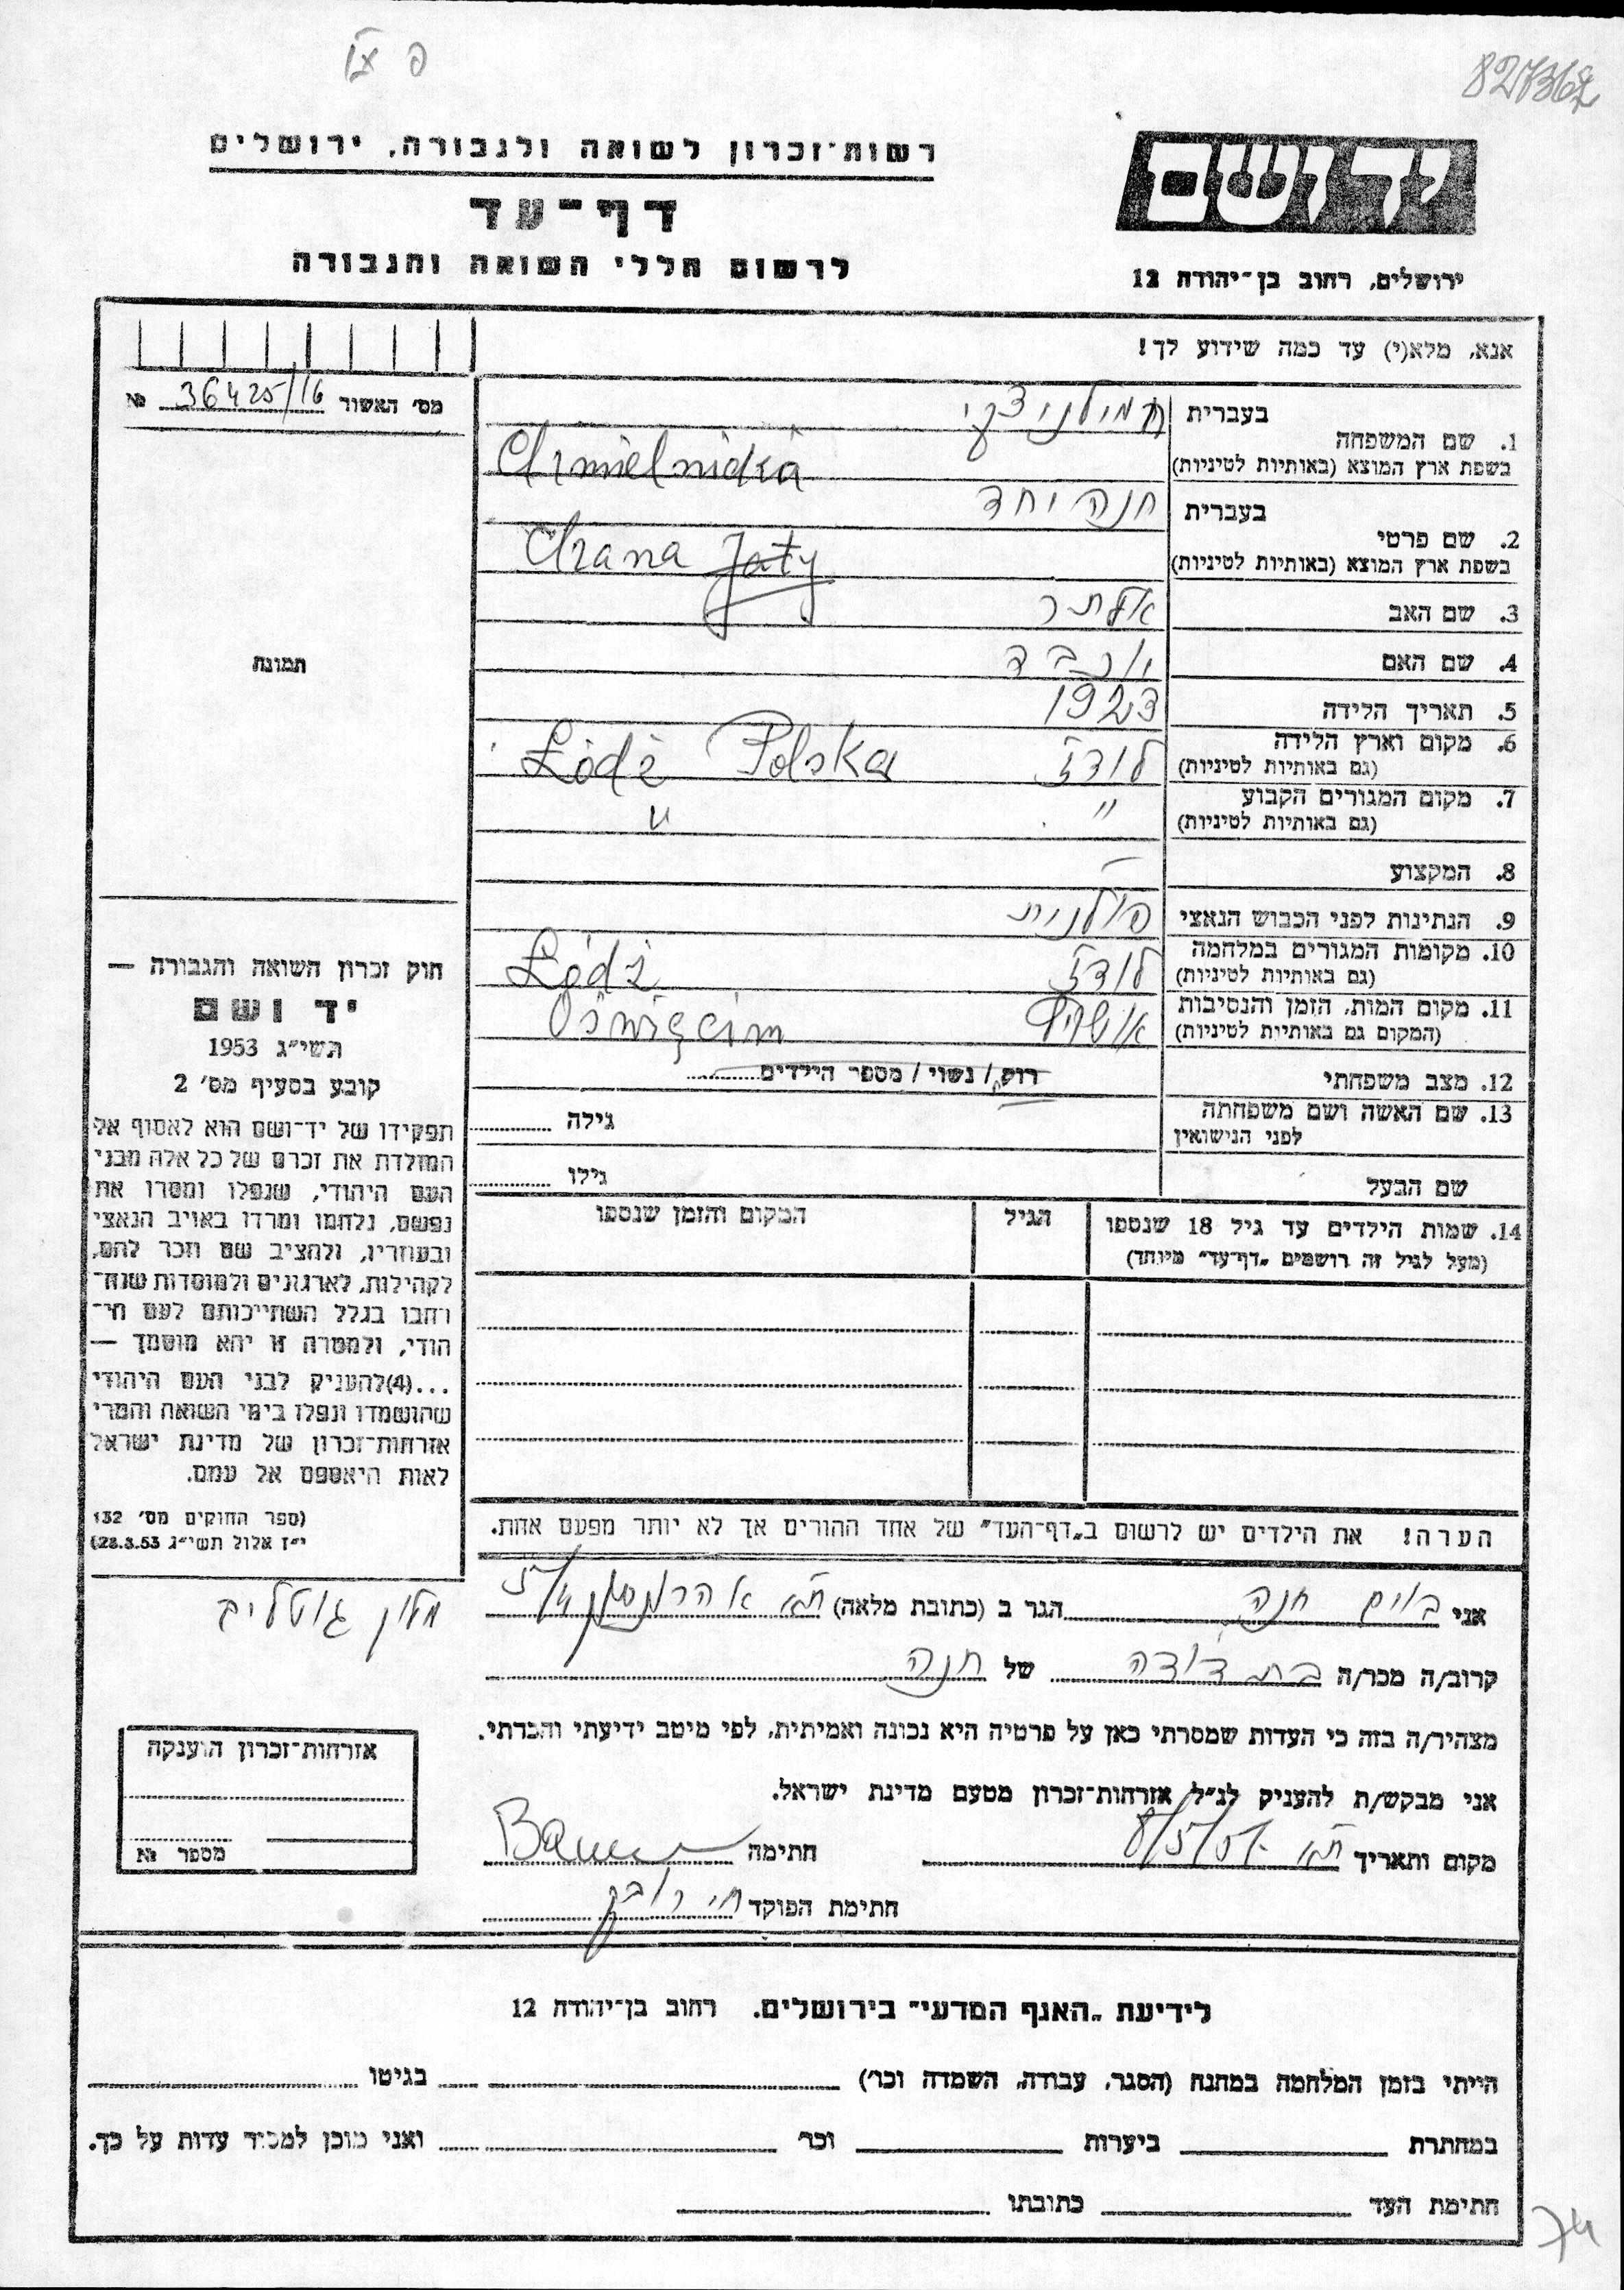 827367
יד ושם
ירושלים, רחוב בן־יהודה 12
רשות־זכרון לשואה ולגבורה, ירושלים
דף־עד
לרשום חללי השואה והגבורה
אנא, מלא(י) עד כמה שידוע לך!
מס׳ האשור 36425/16 №
תמונה
1. שם המשפחה
בעברית חמילניצקי
בשפת ארץ המוצא (באותיות לטיניות) Chmielnicka
2. שם פרטי
בעברית חנה
בשפת ארץ המוצא (באותיות לטיניות) Chana
3. שם האב אלתר
4. שם האם יוכבד
5. תאריך הלידה 1923
6. מקום וארץ הלידה
(גם באותיות לטיניות) לודז Łódź Polska
7. מקום המגורים הקבוע
(גם באותיות לטיניות) " "
8. המקצוע –
9. הנתינות לפני הכבוש הנאצי פולנית
10. מקומות המגורים במלחמה
(גם באותיות לטיניות) לודז Łódź
11. מקום המות, הזמן והנסיבות
(המקום גם באותיות לטיניות) Oświęcim
12. מצב משפחתי רוק / נשוי / מספר הילדים
13. שם האשה ושם משפחתה
לפני הנישואין גילה
שם הבעל גילו
14. שמות הילדים עד גיל 18 שנספו
(מעל לגיל זה רושמים „דף־עד״ מיוחד)
הגיל
המקום והזמן שנספו
חוק זכרון השואה והגבורה —
יד ושם
תשי״ג 1953
קובע בסעיף מס׳ 2
תפקידו של יד־ושם הוא לאסוף אל
המולדת את זכרם של כל אלה מבני
העם היהודי, שנפלו ומסרו את
נפשם, נלחמו ומרדו באויב הנאצי
ובעוזריו, ולהציב שם וזכר להם,
לקהילות, לארגונים ולמוסדות שנח־
רבו בגלל השתייכותם לעם הי־
הודי, ולמטרה זו יהא מוסמך —
...(4)להעניק לבני העם היהודי
שהושמדו ונפלו בימי השואה והמרי
אזרחות־זכרון של מדינת ישראל
לאות היאספם אל עמם.
(ספר החוקים מס׳ 132
י״ז אלול תשי״ג 28.8.53)
הערה! את הילדים יש לרשום ב„דף־העד״ של אחד ההורים אך לא יותר מפעם אחת.
מלון גוטליב
אני בוים חנה הגר ב (כתובת מלאה) ת״א
קרוב/ה מכר/ה בת דודה של חנה
מצהיר/ה בזה כי העדות שמסרתי כאן על פרטיה היא נכונה ואמיתית, לפי מיטב ידיעתי והכרתי.
אני מבקש/ת להעניק לנ״ל אזרחות־זכרון מטעם מדינת ישראל.
מקום ותאריך ת״א חתימה
חתימת הפוקד
אזרחות־זכרון הוענקה
מספר №
לידיעת „האגף המדעי״ בירושלים. רחוב בן־יהודה 12
הייתי בזמן המלחמה במחנה (הסגר, עבודה, השמדה וכו׳) בגיטו
במחתרת ביערות וכו׳ ואני מוכן למסור עדות על כך.
חתימת העד כתובתו